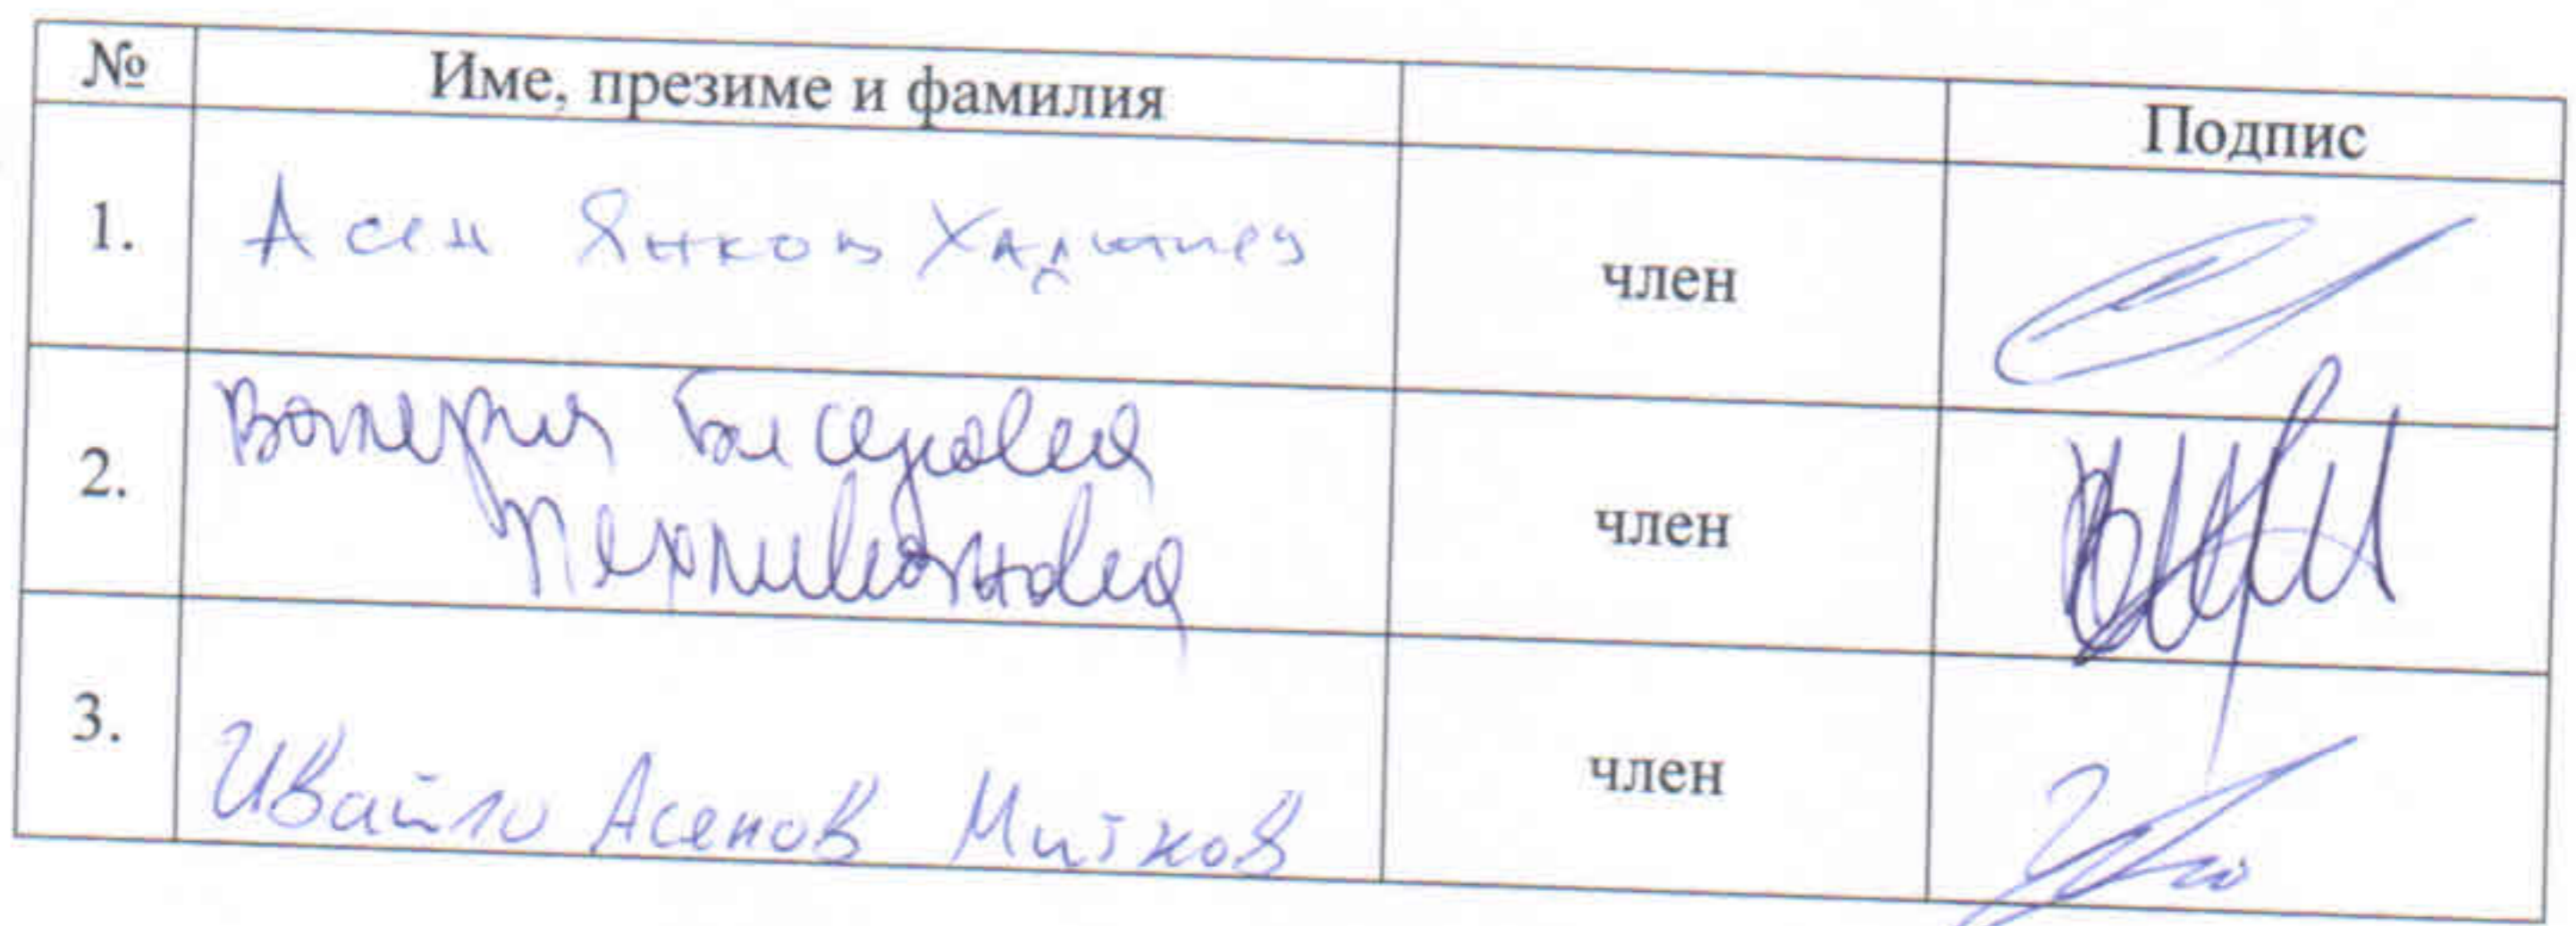 № Име, презиме и фамилия Подпис
1. Асен Янков член
2. Валерия Бисерова член
3. Ивайло Асенов Митков член